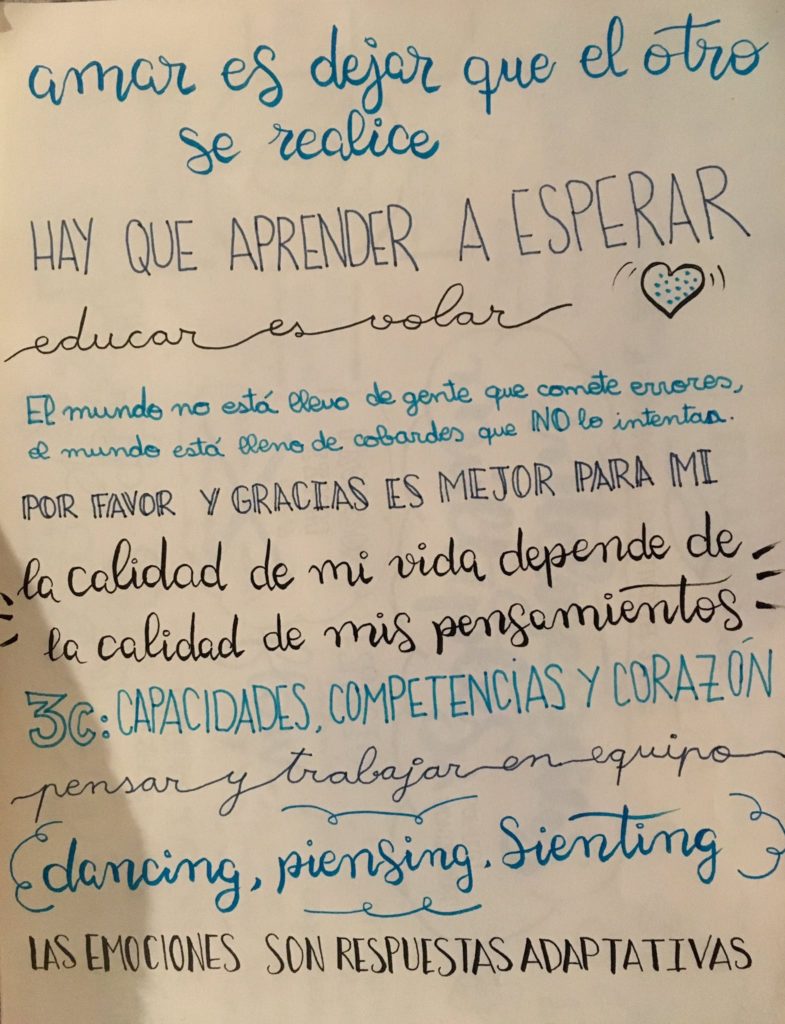 amar es dejar que el otro
se realice
HAY QUE APRENDER A ESPERAR
educar es volar
El mundo no está lleno de gente que comete errores,
el mundo está lleno de cobardes que NO lo intentan.
POR FAVOR Y GRACIAS ES MEJOR PARA MI
la calidad de mi vida depende de
la calidad de mis pensamientos
3C: CAPACIDADES, COMPETENCIAS Y CORAZÓN
pensar y trabajar en equipo
dancing, piensing, Sienting
LAS EMOCIONES SON RESPUESTAS ADAPTATIVAS